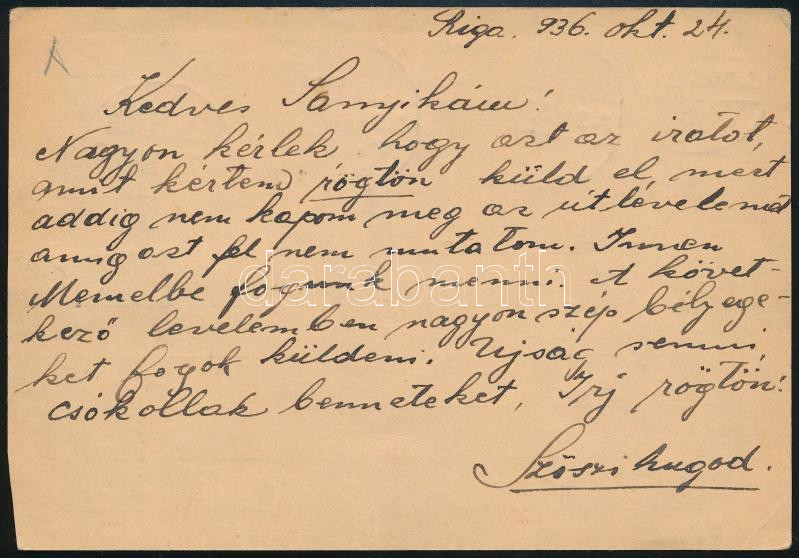 Riga. 936. okt. 24.
Kedves Sanyikám!
Nagyon kérlek hogy ast az iratot,
amit kértem rögtön küld el, mert
addig nem kapom meg az útlevelemet
amig ast fel nem mutatom. Innen
Memelbe fogunk menni. A követ-
darabanth
kező levelemben nagyon szép bélyege-
ket fogok küldeni. Ujság semmi,
csókollak benneteket, Irj rögtön!
Szöszi hugod.